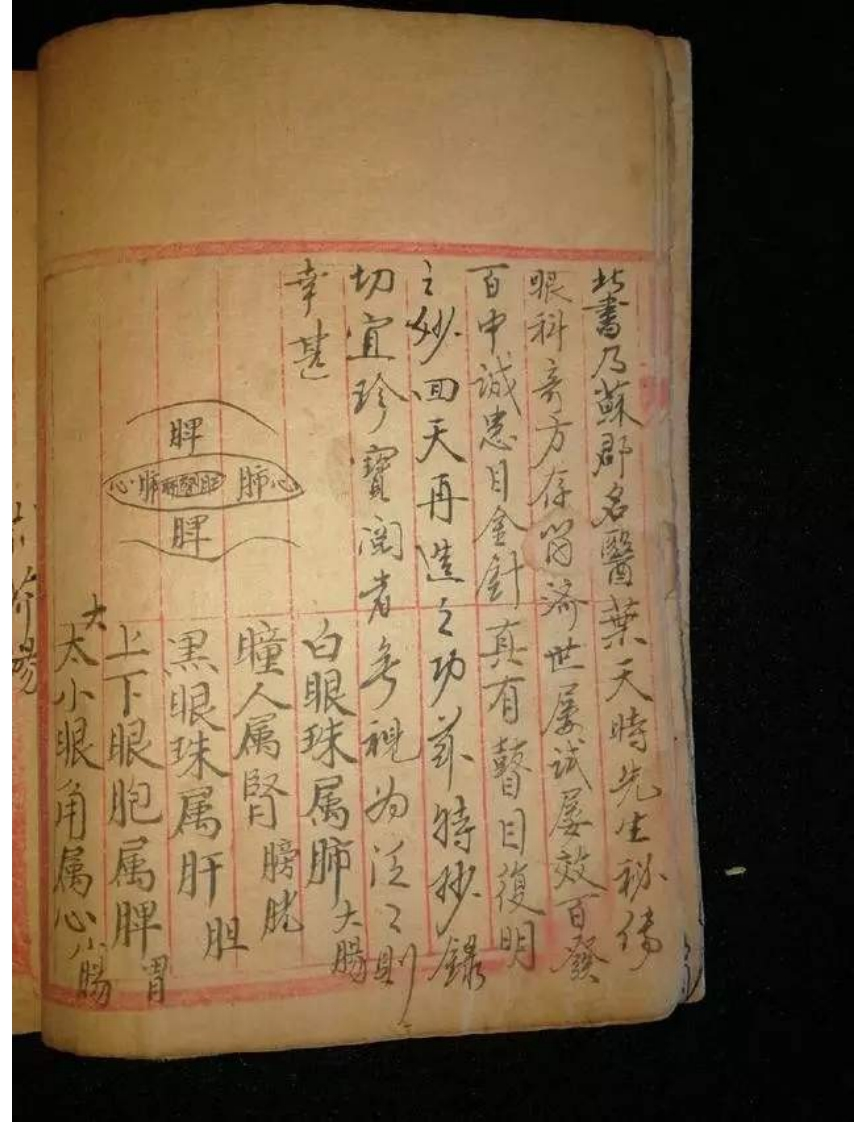 此書乃蘇郡名醫葉天時先生秘傳
眼科奇方存留濟世屡試屡效百發
百中誠患目金針真有瞽目復明
之妙回天再造之功茲特抄録
切宜珍寶閱者勿視為泛泛則
幸甚
脾
心肺肝腎肝肺心
脾
白眼珠属肺大腸
瞳人属腎膀胱
黑眼珠属肝胆
上下眼胞属脾胃
大
太小眼角属心小腸